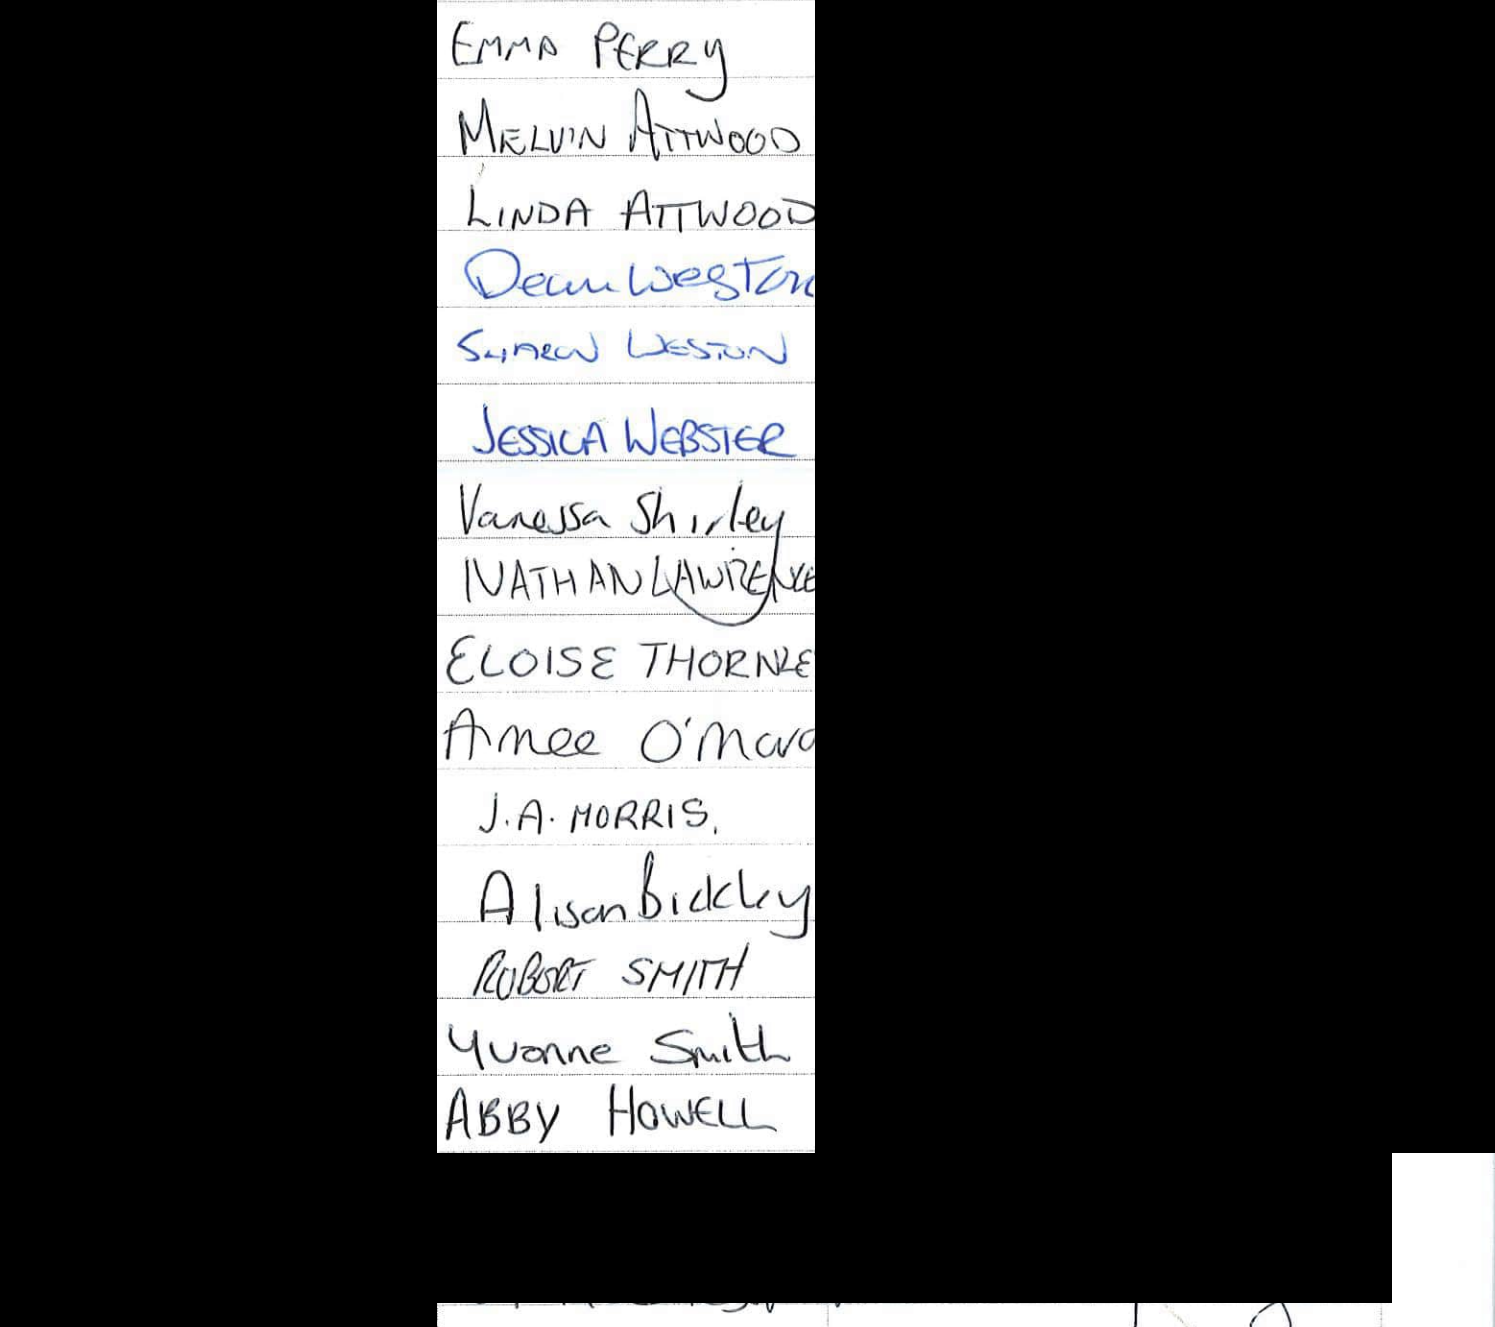 EMMA PERRY
MELVIN ATTWOOD
LINDA ATTWOOD
Dean Weston
SHARON WESTON
JESSICA WEBSTER
Vanessa Shirley
NATHAN LAWRENCE
ELOISE THORNLE
Amee O'Mara
J.A. MORRIS.
Alison Bickley
ROBERT SMITH
Yvonne Smith
ABBY HOWELL